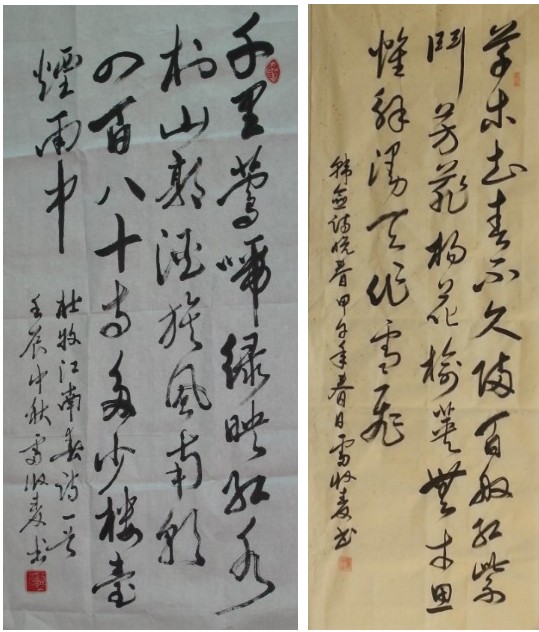 千里鶯啼绿映红水
村山郭酒旗风南朝
四百八十寺多少楼臺
煙雨中
杜牧江南春诗一首
壬辰中秋雷收麦书
草木知春不久归百般红紫
鬥芳菲杨花榆荚無才思
惟解漫天作雪飛
韩愈诗晚春甲午年春日雷收麦书